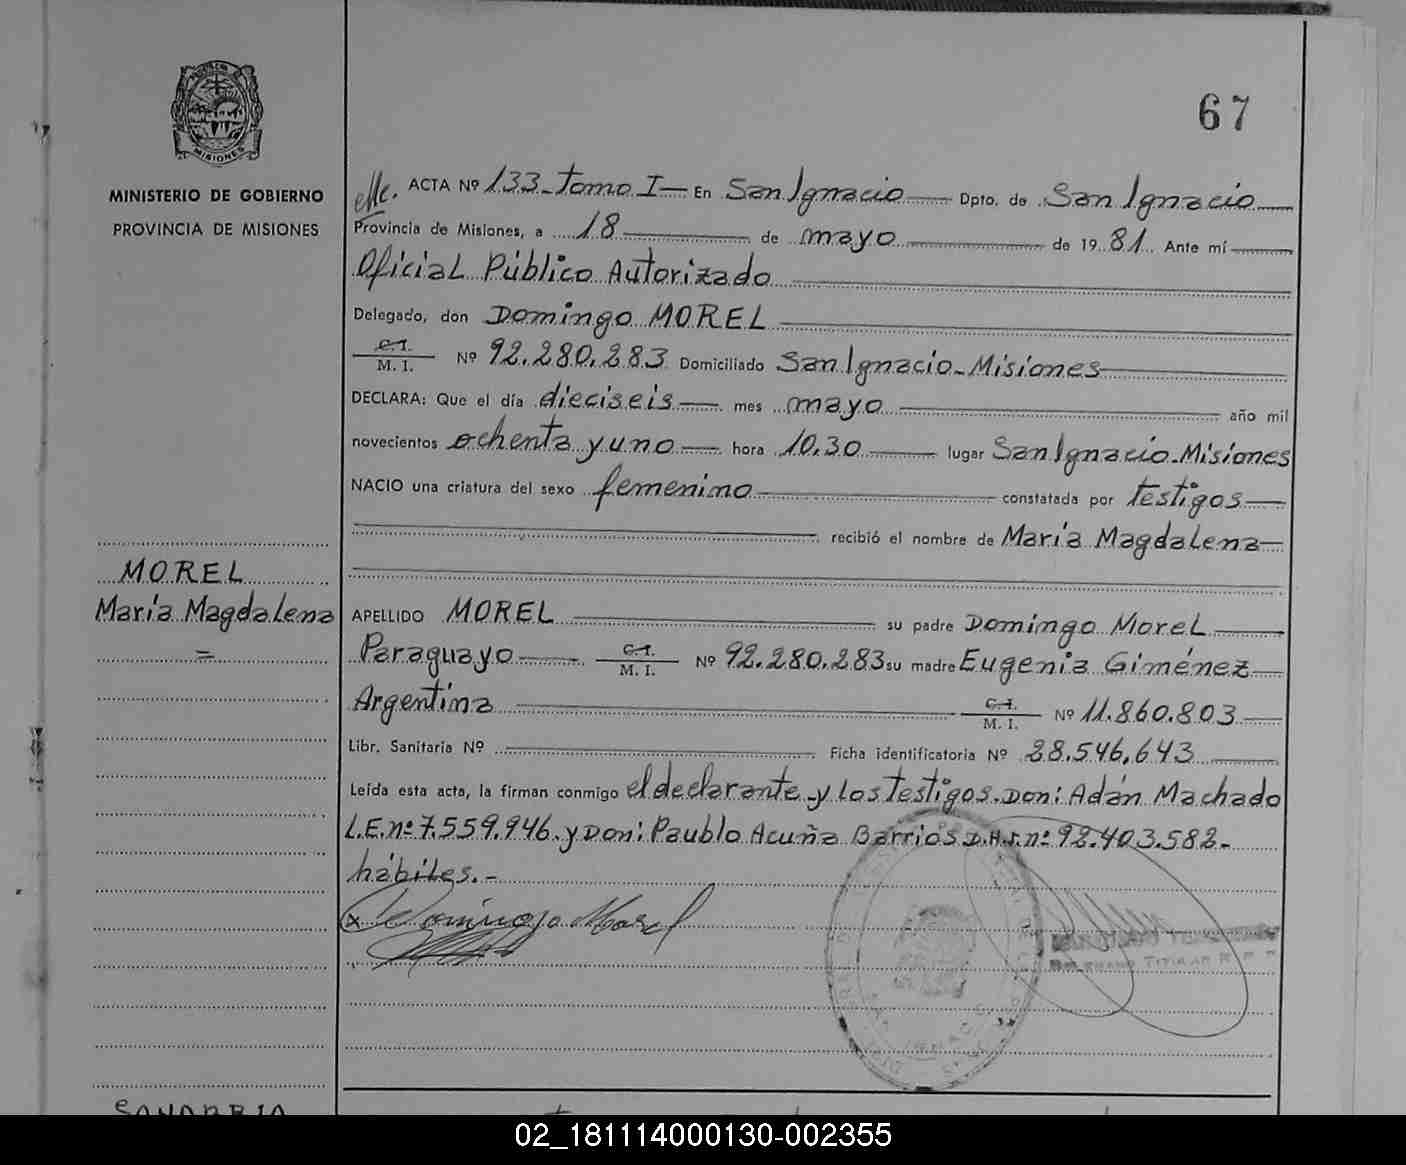 67
MISIONES
MINISTERIO DE GOBIERNO
PROVINCIA DE MISIONES
MOREL
María Magdalena
=
ACTA Nº 133-Tomo I— En San Ignacio Dpto. de San Ignacio
Provincia de Misiones, a 18 de mayo de 1981 Ante mí
Oficial Público Autorizado
Delegado, don Domingo MOREL
C.I.
M. I. Nº 92.280.283 Domiciliado San Ignacio-Misiones
DECLARA: Que el día dieciseis mes mayo año mil
novecientos ochenta y uno hora 10,30 lugar San Ignacio-Misiones
NACIO una criatura del sexo femenino constatada por testigos
recibió el nombre de María Magdalena
APELLIDO MOREL su padre Domingo Morel
Paraguayo C.I. M. I. Nº 92.280.283 su madre Eugenia Giménez
Argentina C.I. M. I. Nº 11.860.803
Libr. Sanitaria Nº Ficha identificatoria Nº 28.546,643
Leída esta acta, la firman conmigo el declarante y los testigos. Don: Adán Machado
L.E.nº 7.559.946. y Don: Paublo Acuña Barrios D.A.J.nº 92.403.582-
hábiles.-
x Domingo Morel
TITULAR
SANABRIA
02_181114000130-002355